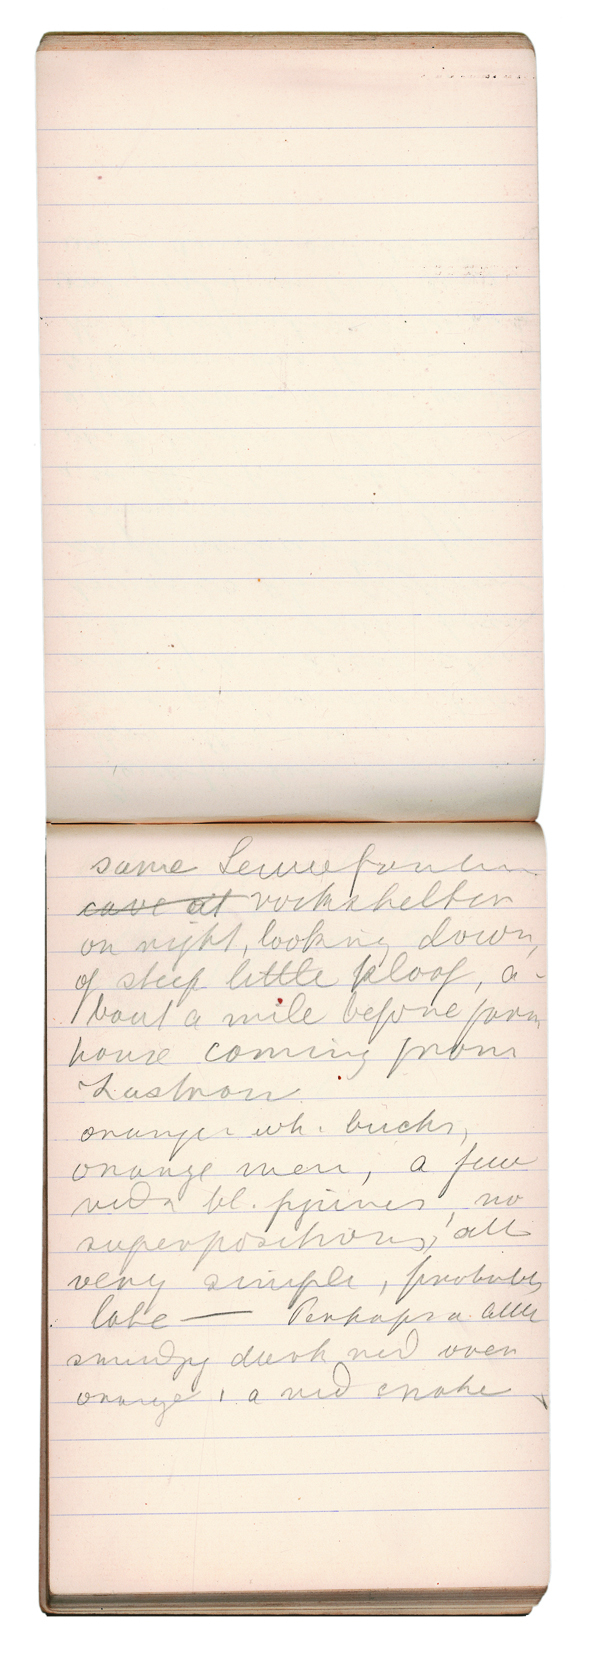 same Leeuwfontein
cave at rockshelter
on right, looking down,
of steep little kloof, a-
bout a mile before farm
house coming from
Zastron
oranges wh. bucks,
orange men, a few
red & bl. figures, no
superpositions, all
very simple, probably
late — Perhaps a little
smudgy dark red over
orange, a red snake